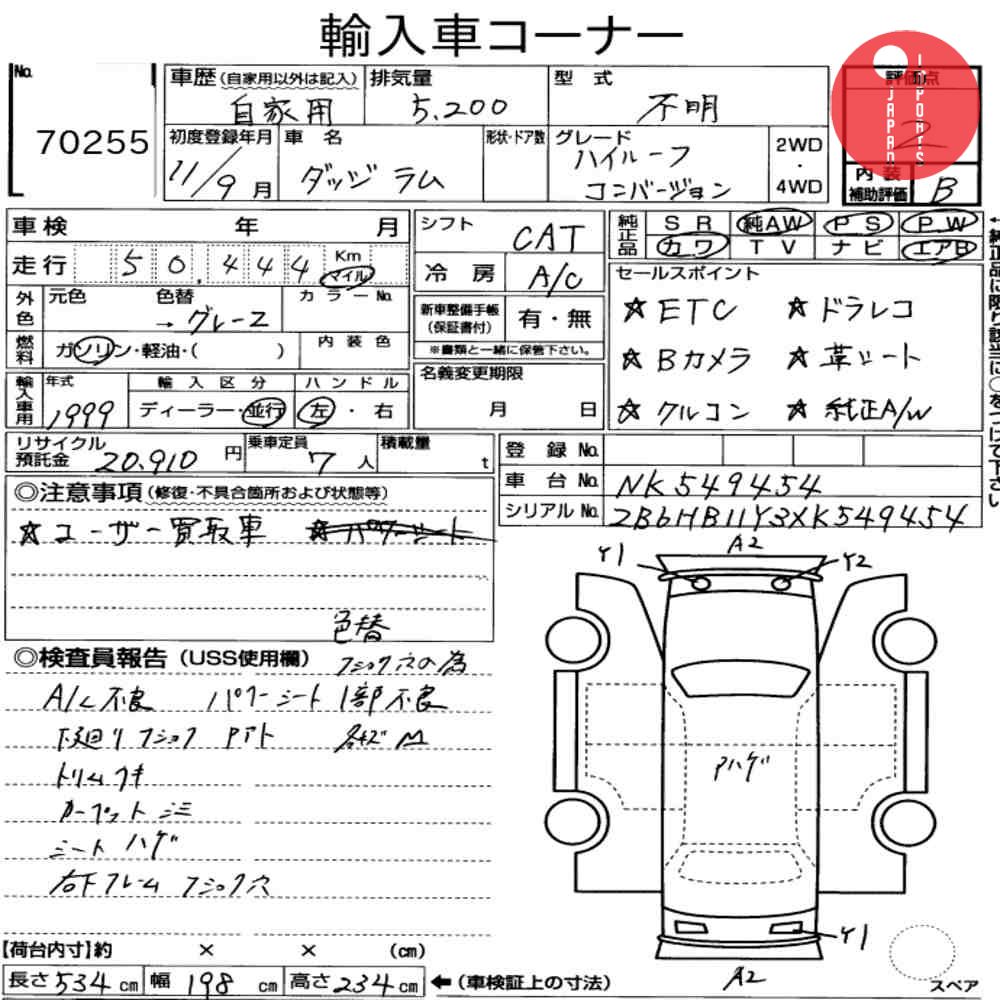 輸入車コーナー
No.
70255
車歴(自家用以外は記入)
自家用
排気量
5,200
型式
不明
評価点
2
JAPAN
IMPORTS
初度登録年月
11/9月
車名
ダッジ ラム
形状・ドア数
グレード
ハイルーフ
コンバージョン
2WD
・
4WD
内装
補助評価
B
車検 年 月
走行
50,444
Km
マイル
シフト
CAT
冷房
A/C
純正品
SR 純AW PS PW
カワ TV ナビ エアB
外色
元色 色替
→グレー2
カラーNo.
燃料
ガソリン・軽油・( )
内装色
新車整備手帳
(保証書付)
有・無
※書類と一緒に保管下さい。
セールスポイント
☆ETC ☆ドラレコ
☆Bカメラ ☆革シート
☆クルコン ☆純正A/W
←純正品に限り該当に○をつけて下さい
輸入車用
年式
1999
輸入区分
ディーラー・並行
ハンドル
左・右
名義変更期限
月 日
リサイクル
預託金
20,910円
乗車定員
7人
積載量
t
登録No.
車台No.
NK549454
シリアルNo.
2B6HB11Y3XK549454
◎注意事項(修復・不具合箇所および状態等)
☆ユーザー買取車
色替
◎検査員報告(USS使用欄)
フショク穴の為
A/C不良 パワーシート1部不良
下廻りフショク Pアト
各キズ M
トリムキ
カーペット
シートハゲ
右下フレーム フショク穴
Y1
A2
Y2
Pハゲ
Y1
A2
スペア
【荷台内寸】約 × × (cm)
長さ534cm 幅198cm 高さ234cm ←(車検証上の寸法)